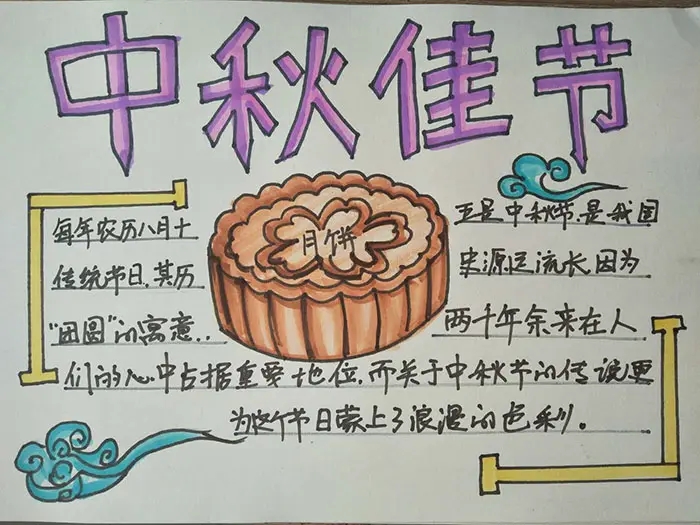 中秋佳节
月饼
每年农历八月十 五是中秋节.是我国
传统节日.其历 史源远流长,因为
"团圆"的寓意.. 两千年余来在人
们的心中占据重要地位.而关于中秋节的传说更
为这个节日蒙上了浪漫的色彩。